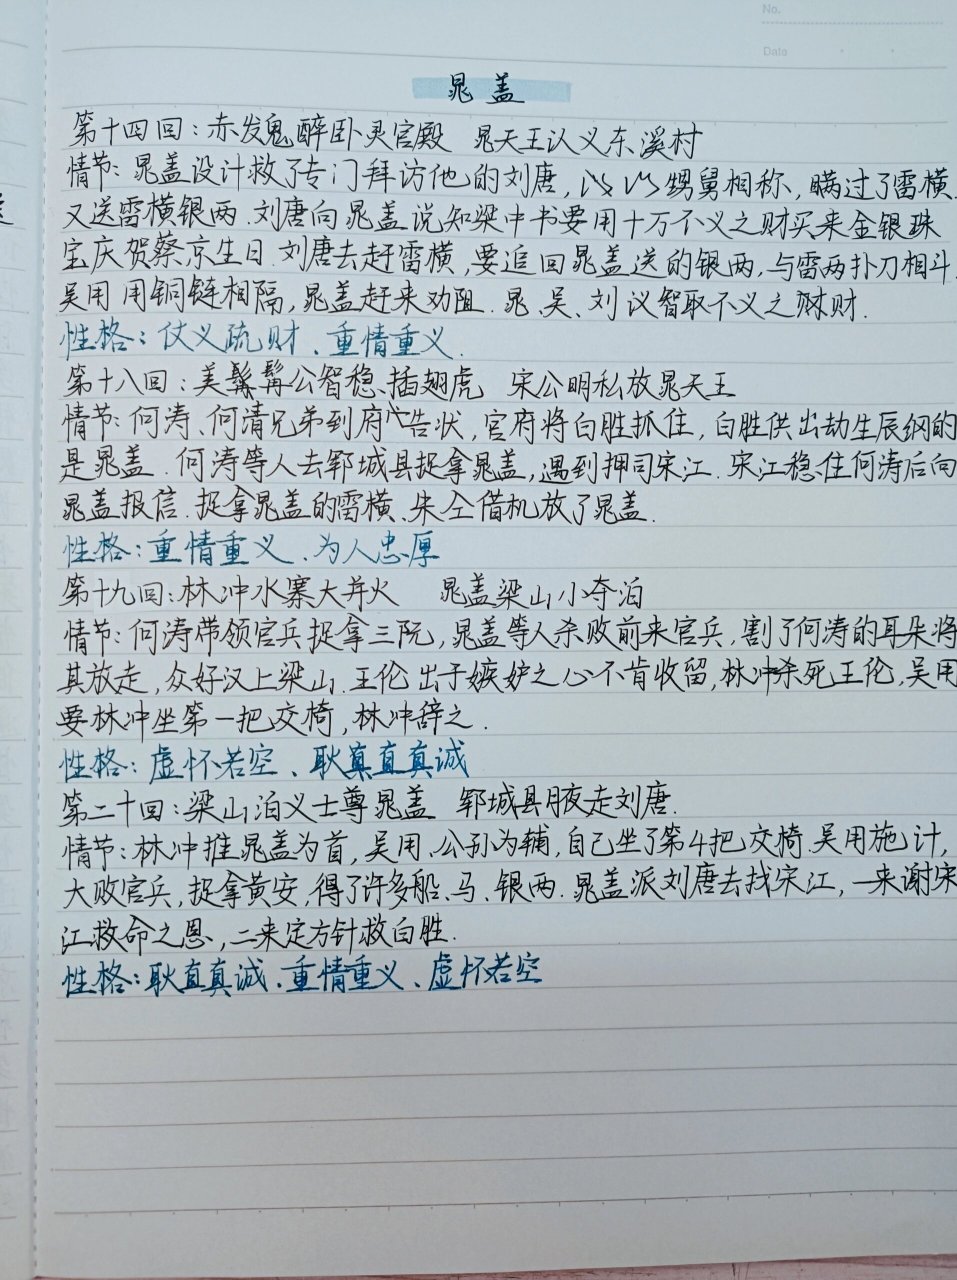 No.
Date
晁盖
第十四回：赤发鬼醉卧灵官殿 晁天王认义东溪村
情节：晁盖设计救了专门拜访他的刘唐，以甥舅相称、瞒过了雷横
又送雷横银两.刘唐向晁盖说知梁中书要用十万不义之财买来金银珠
宝庆贺蔡京生日.刘唐去赶雷横，要追回晁盖送的银两，与雷两扑刀相斗.
吴用用铜链相隔，晁盖赶来劝阻.晁、吴、刘议智取不义之财.
性格：仗义疏财、重情重义.
第十八回：美髯公智稳插翅虎 宋公明私放晁天王
情节：何涛、何清兄弟到府尹告状，官府将白胜抓住，白胜供出劫生辰纲的
是晁盖.何涛等人去郓城县捉拿晁盖，遇到押司宋江.宋江稳住何涛后向
晁盖报信.捉拿晁盖的雷横、朱仝借机放了晁盖.
性格：重情重义、为人忠厚
第十九回：林冲水寨大并火 晁盖梁山小夺泊
情节：何涛带领官兵捉拿三阮，晁盖等人杀败前来官兵，割了何涛的耳朵将
其放走，众好汉上梁山.王伦出于嫉妒之心不肯收留，林冲杀死王伦，吴用
要林冲坐第一把交椅，林冲辞之.
性格：虚怀若空、耿直真诚
第二十回：梁山泊义士尊晁盖 郓城县月夜走刘唐.
情节：林冲推晁盖为首，吴用、公孙为辅，自己坐了第4把交椅.吴用施计，
大败官兵，捉拿黄安，得了许多船、马、银两.晁盖派刘唐去找宋江，一来谢宋
江救命之恩，二来定方针救白胜.
性格：耿直真诚、重情重义、虚怀若空